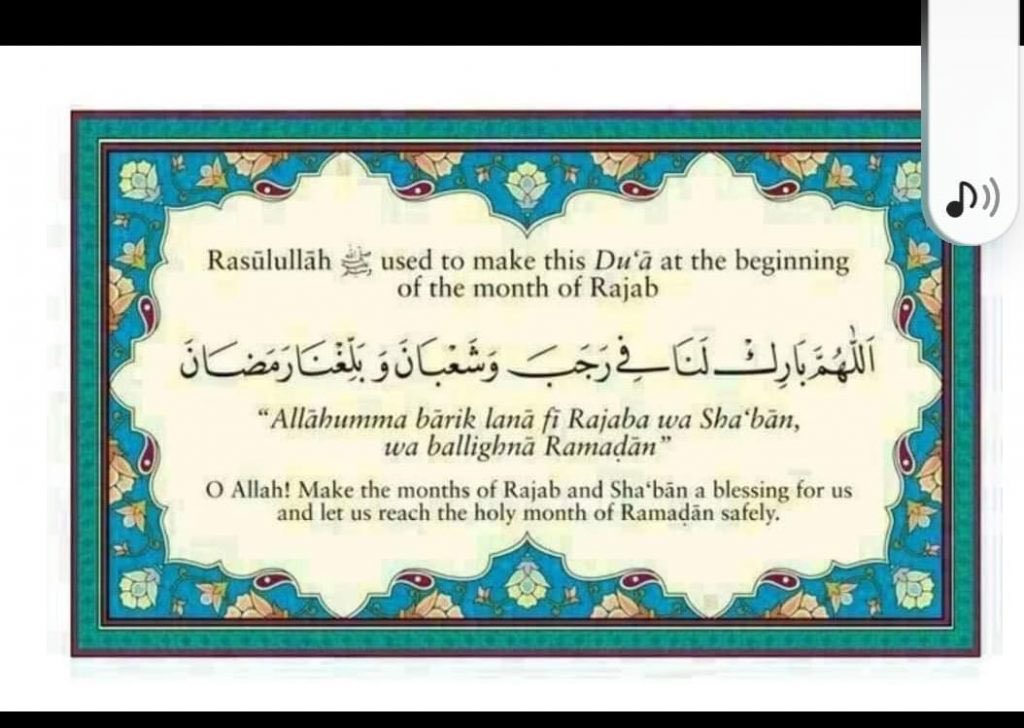 Rasūlullāh ﷺ used to make this Du‘ā at the beginning
of the month of Rajab
اَللّٰهُمَّ بَارِكْ لَنَا فِي رَجَبَ وَشَعْبَانَ وَبَلِّغْنَا رَمَضَانَ
“Allāhumma bārik lanā fī Rajaba wa Sha‘bān,
wa ballighnā Ramaḍān”
O Allah! Make the months of Rajab and Sha‘bān a blessing for us
and let us reach the holy month of Ramaḍān safely.